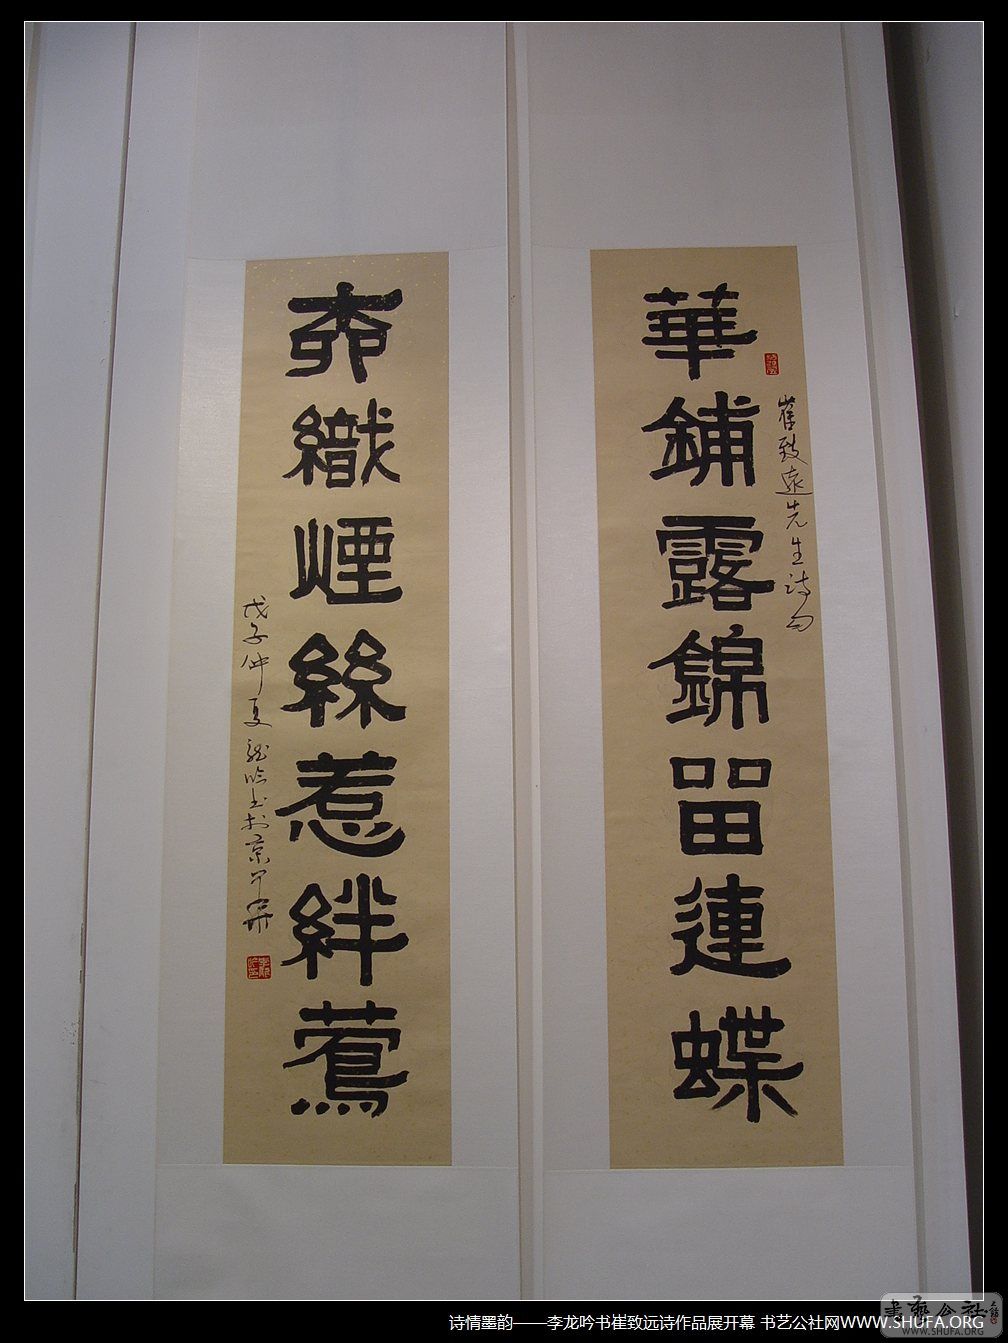 華鋪露錦留連蝶
崔致遠先生詩句
柳織煙絲惹絆鶯
戊子仲夏龍吟书於京
诗情墨韵——李龙吟书崔致远诗作品展开幕 书艺公社网WWW.SHUFA.ORG
書藝公社
WWW.SHUFA.ORG